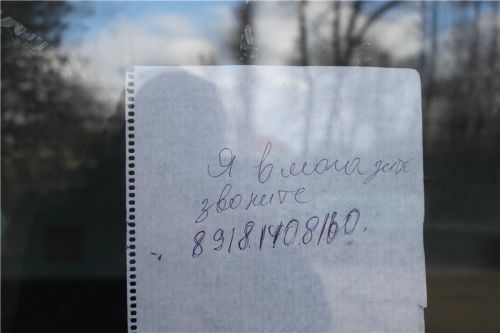 Я в магазин
звоните
8918.140.8160.